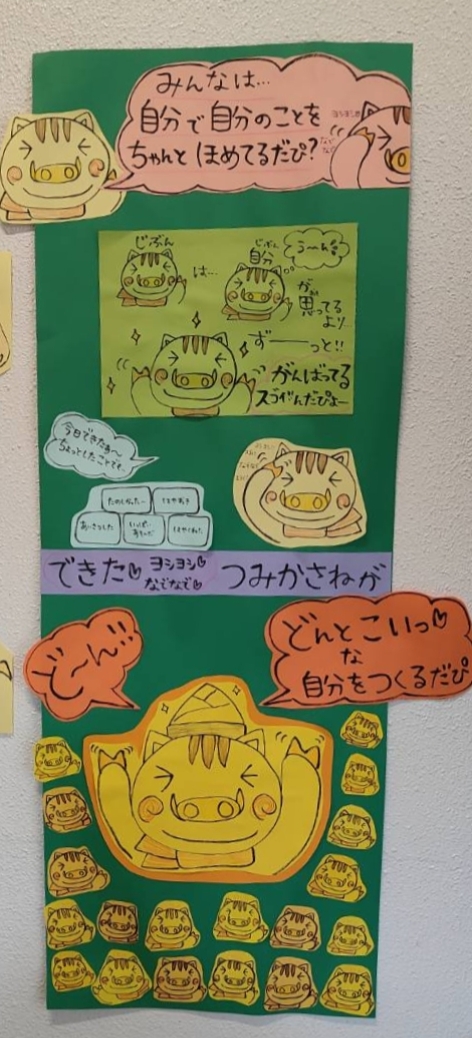 みんなは…
自分で自分のことを
ちゃんとほめてるだぴ?
ヨシヨシ
なでなで
じぶん
は…
じぶん
自分
う〜んな
が
思ってる
より
ず――っと!!
がんばってる
スゴイんだぴよー
今日できたぁ〜
ちょっとしたことで〜
たのしかったー
あいさつした
できた♡ヨシヨシ♡
なでなで♡
つみかさねが
ど〜ん!!
どんとこいっ♡
な
自分をつくるだぴ